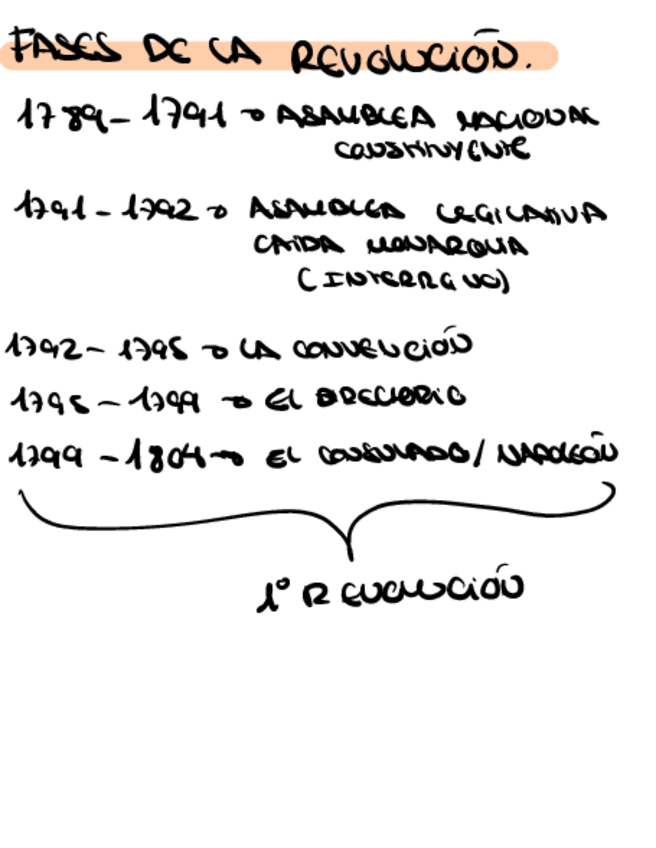 FASES DE LA REVOLUCIÓN.
1789 - 1791 → ASAMBLEA NACIONAL
CONSTITUYENTE
1791 - 1792 → ASAMBLEA LEGISLATIVA
CAIDA MONARQUIA
(INTERREGNO)
1792 - 1795 → LA CONVENCIÓN
1795 - 1799 → EL DIRECTORIO
1799 - 1804 → EL CONSULADO / NAPOLEÓN
1º REVOLUCIÓN